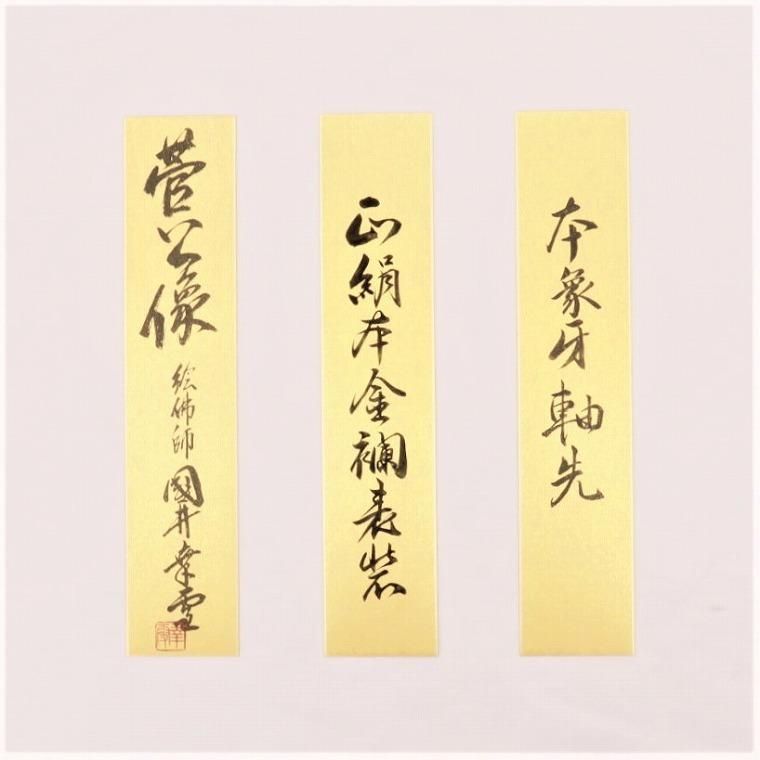 本象牙軸先
正絹本金襴表装
菅公像
絵佛師 國井幸雲